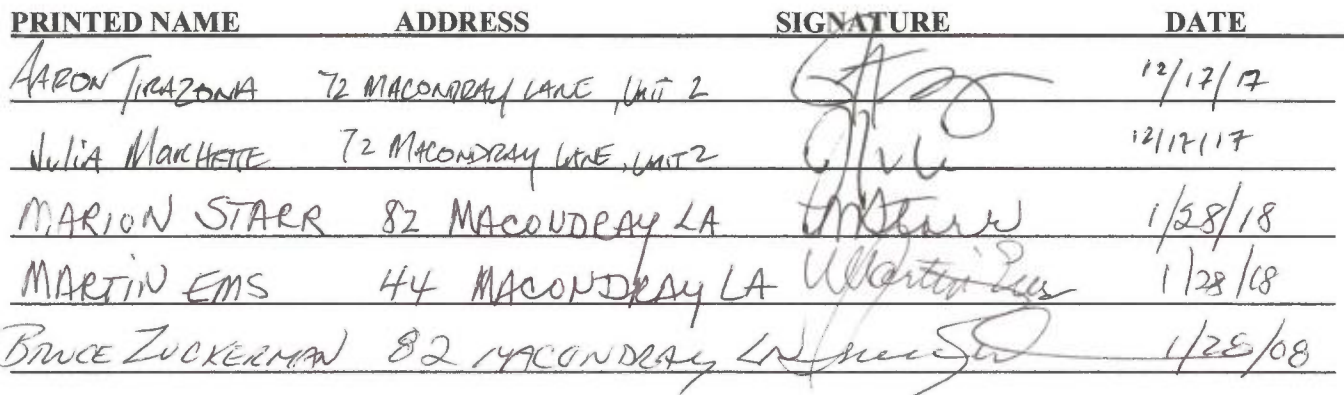 PRINTED NAME ADDRESS SIGNATURE DATE
AARON TIRAZONA 72 MACONDRAY LANE, UNIT 2 12/17/17
JuliA MarcHETTE 72 MACONDRAY LANE, UNIT 2 12/17/17
MARION STARR 82 MACONDRAY LA MStarr 1/28/18
MARTIN EMS 44 MACONDRAY LA Martin Ems 1/28/18
BRUCE ZUCKERMAN 82 MACONDRAY LN 1/28/08